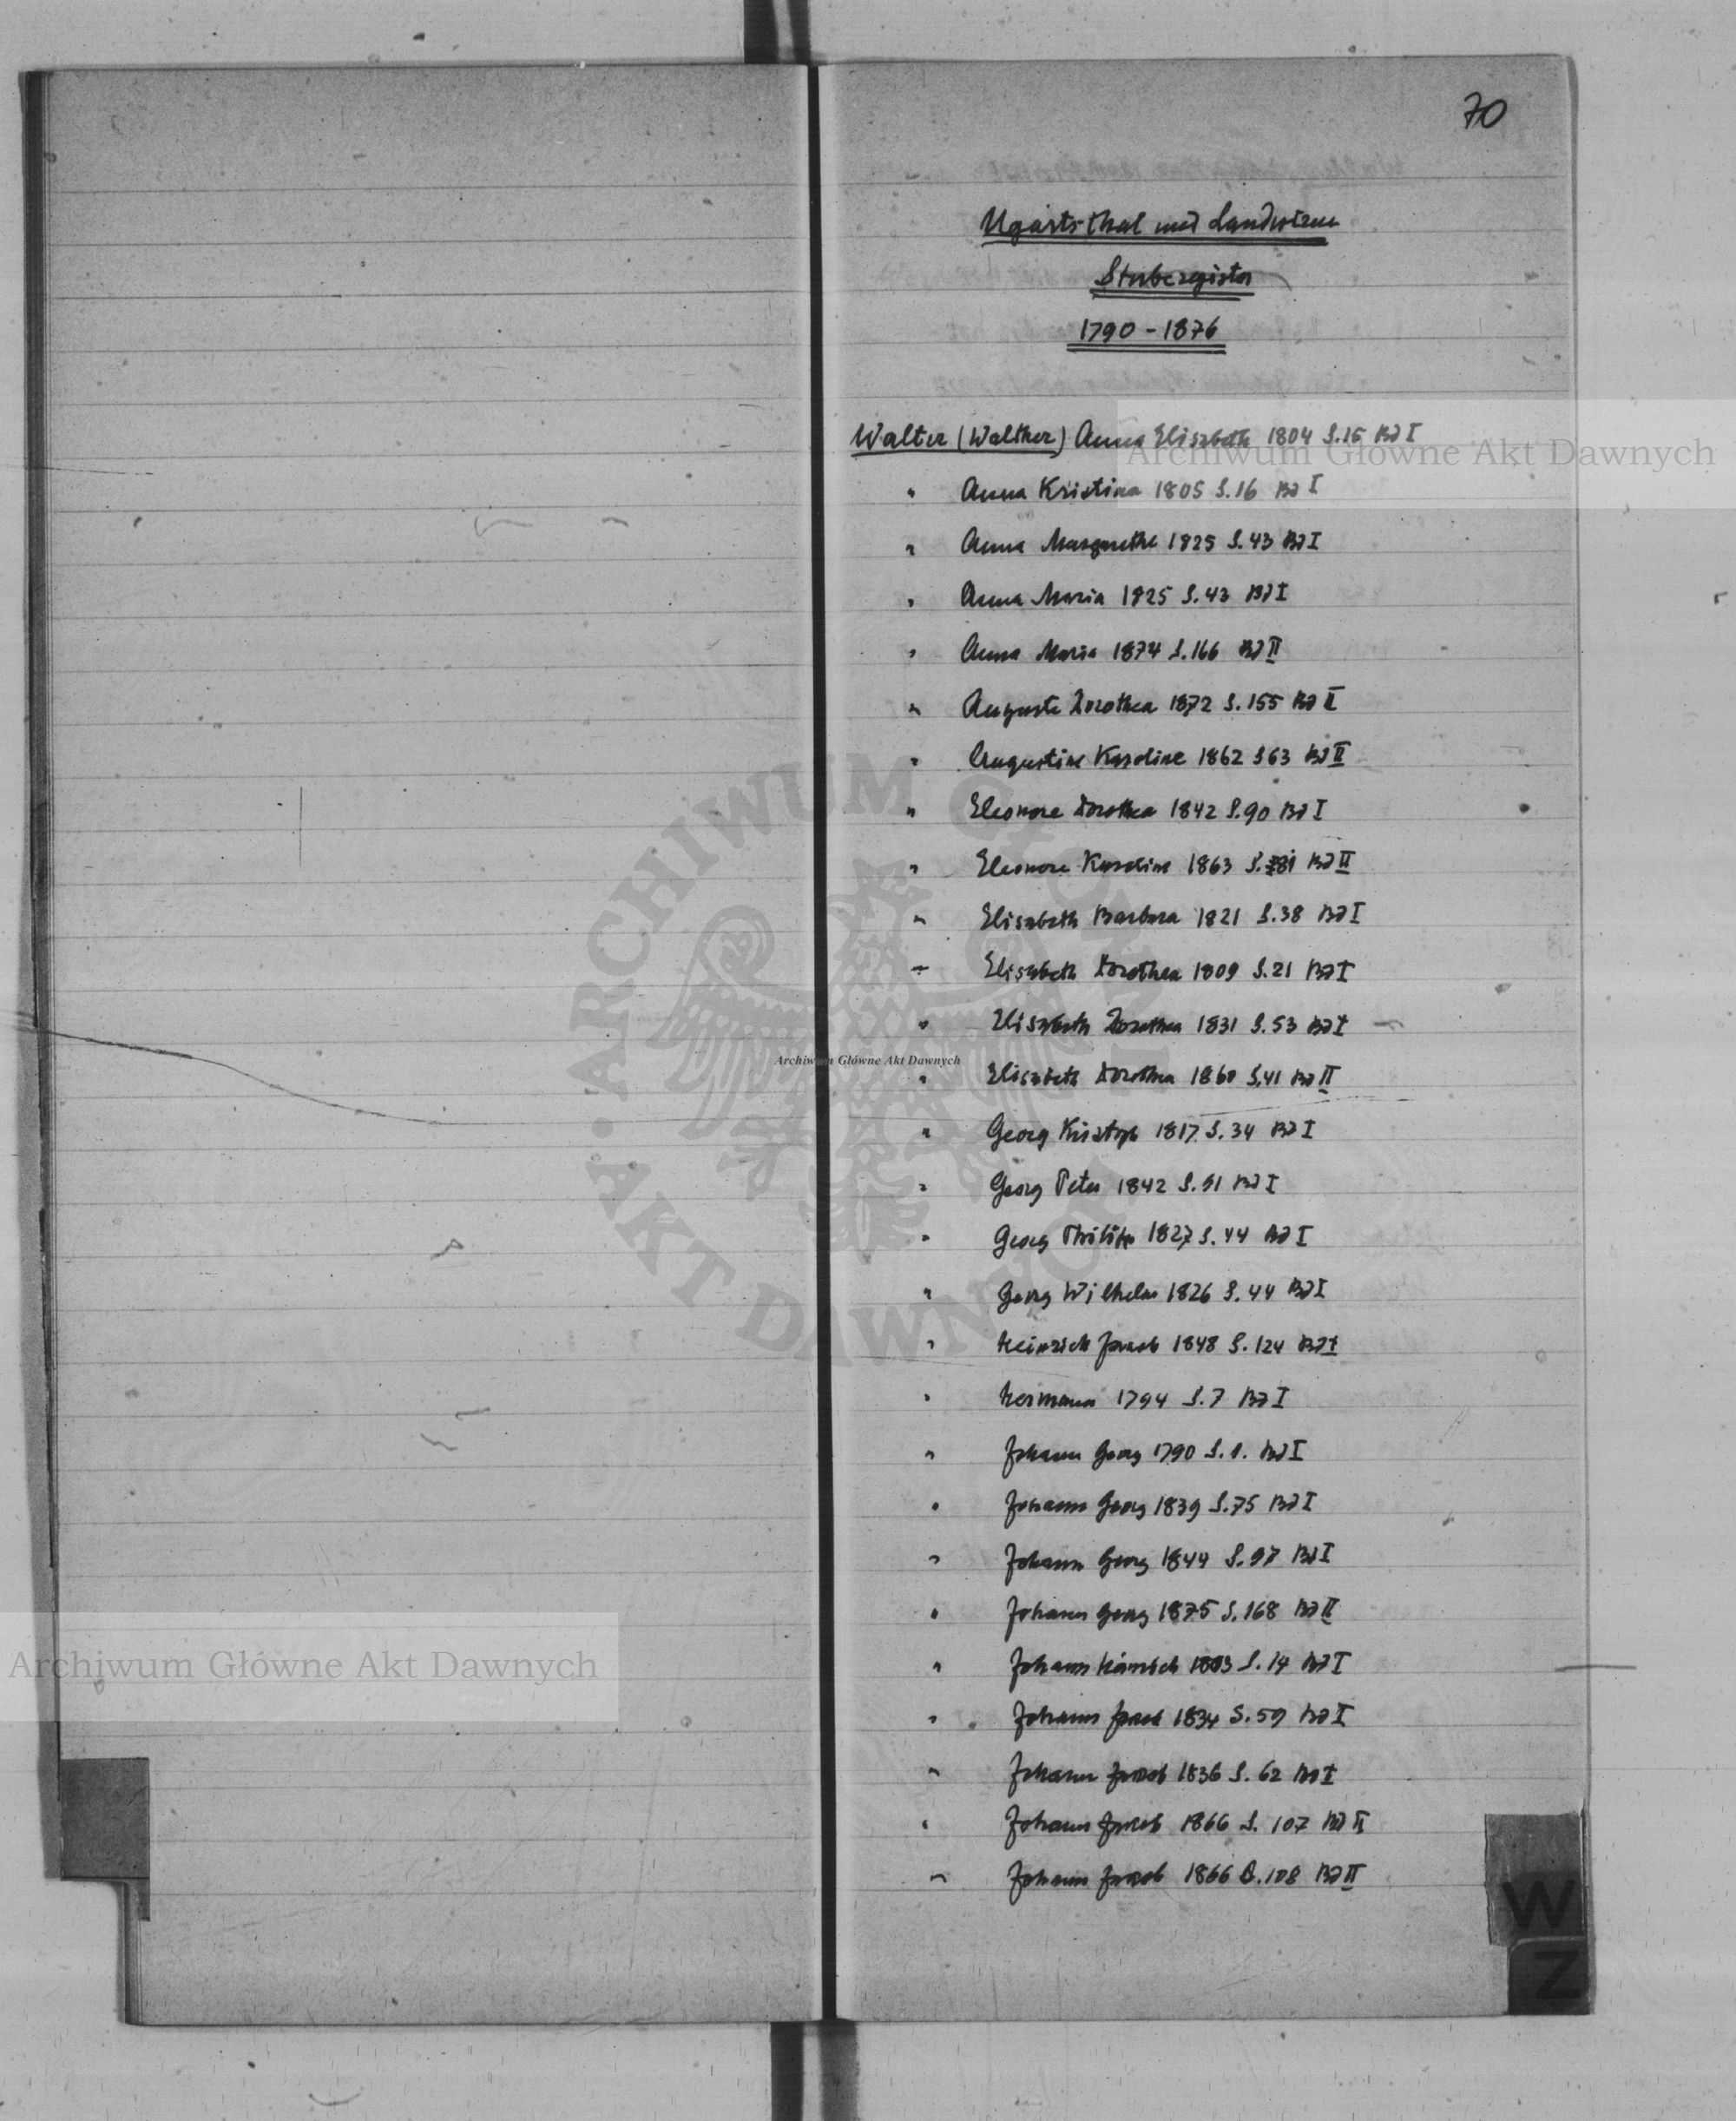 70
Ugartsthal und Landestreu
Sterberegister
1790 - 1876
Walter (Walther) Anna Elisabeth 1804 S.15 Bd I
Archiwum Główne Akt Dawnych
" Anna Kristina 1805 S.16 Bd I
" Anna Margarethe 1825 S.43 Bd I
" Anna Maria 1825 S.43 Bd I
" Anna Maria 1874 S.166 Bd II
" Auguste Dorothea 1872 S.155 Bd II
" Augustine Karoline 1862 S 63 Bd II
" Eleonore Dorothea 1842 S.90 Bd I
" Eleonore Karoline 1863 S. 81 Bd II
" Elisabeth Barbara 1821 S.38 Bd I
" Elisabeth Dorothea 1809 S.21 Bd I
" Elisabeth Dorothea 1831 S.53 Bd I
Archiwum Główne Akt Dawnych
" Elisabeth Dorothea 1860 S.41 Bd II
" Georg Kristoph 1817 S.34 Bd I
" Georg Peter 1842 S.91 Bd I
" Georg Philipp 1827 S.44 Bd I
" Georg Wilhelm 1826 S.44 Bd I
" Heinrich Jacob 1848 S.124 Bd I
" Hermann 1794 S.7 Bd I
" Johann Georg 1790 S.1. Bd I
" Johann Georg 1839 S.75 Bd I
" Johann Georg 1844 S.97 Bd I
" Johann Georg 1875 S.168 Bd II
" Johann Heinrich 1803 S.14 Bd I
Archiwum Główne Akt Dawnych
" Johann Jacob 1834 S.59 Bd I
" Johann Jacob 1836 S.62 Bd I
" Johann Jacob 1866 S.107 Bd II
" Johann Jacob 1866 S.108 Bd II
W
Z
ARCHIWUM GŁÓWNE AKT DAWNYCH